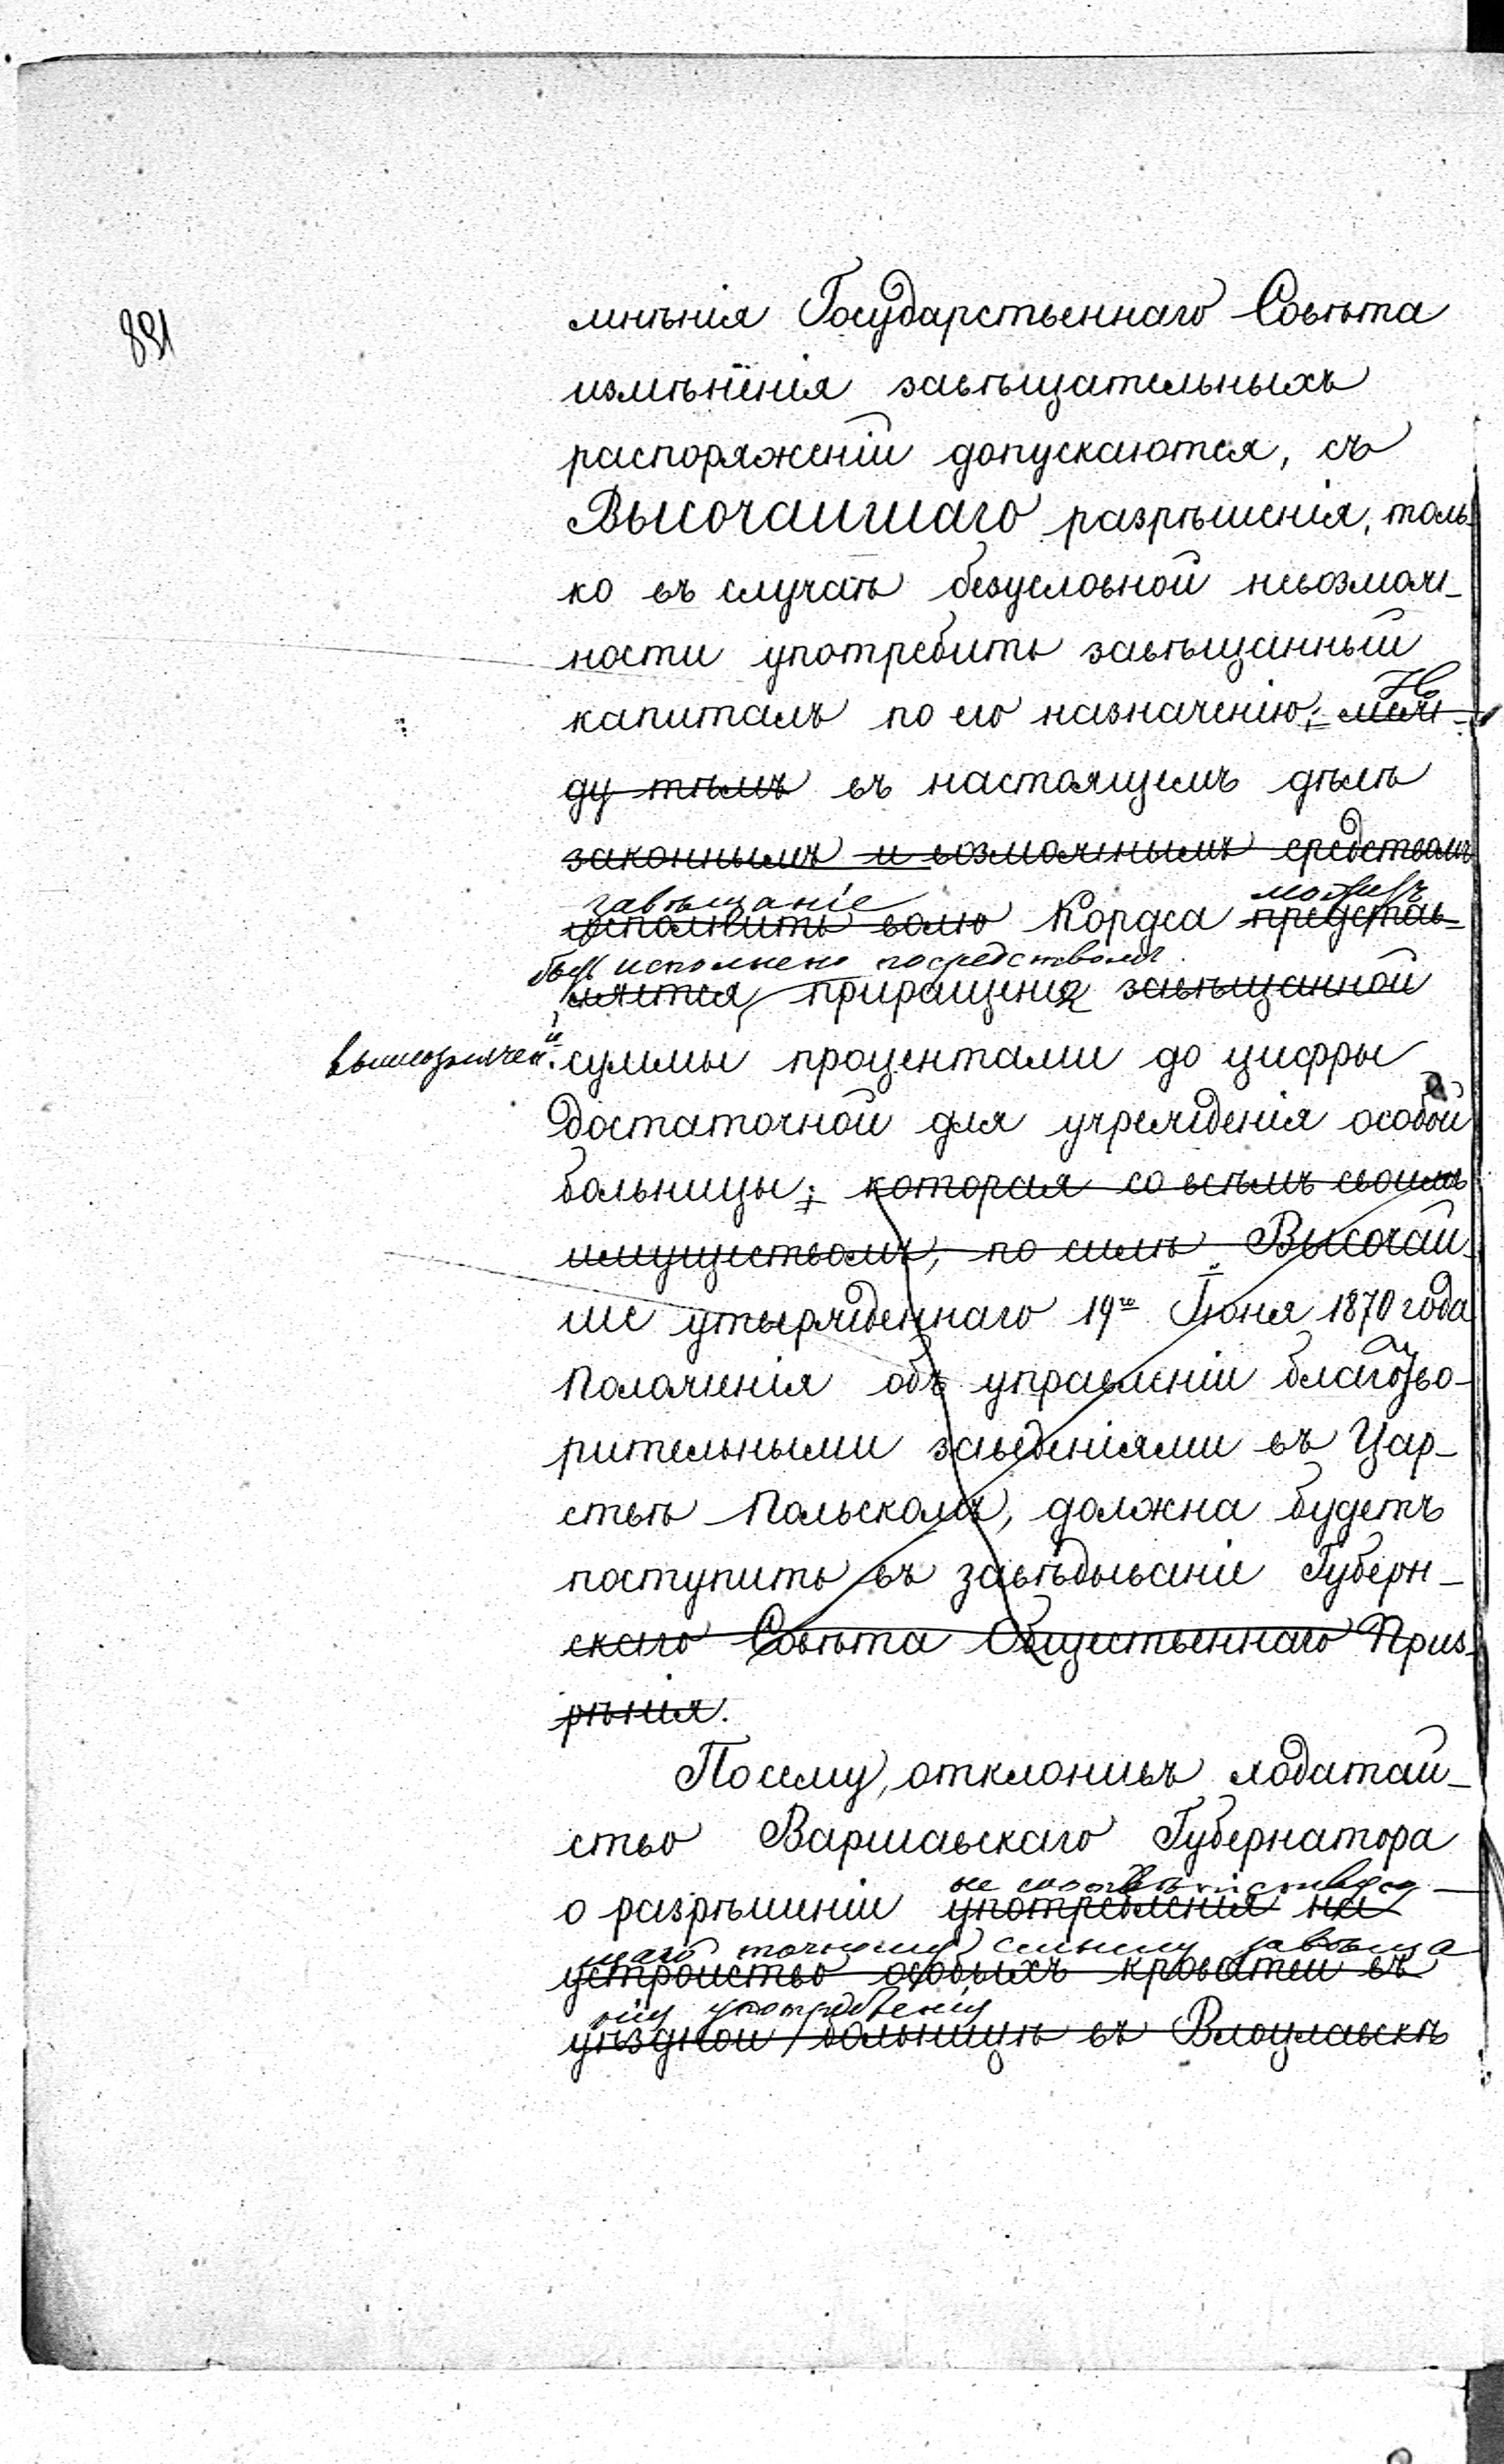 881
мнѣнія Государственнаго Совѣта
измѣненія завѣщательныхъ
распоряженій допускаются, съ
ВЫСОЧАЙШАГО разрѣшенія, толь-
ко въ случаѣ безусловной невозмож-
ности употребить завѣщанный
капиталъ по его назначенію; меж-
ду тѣмъ въ настоящемъ дѣлѣ
законнымъ и возможнымъ средствомъ
завѣщаніе можетъ
исполнить волю Кордеа представ-
быть исполнено посредствомъ
ляется приращенія завѣщанной
суммы процентами до цифры
достаточной для учрежденія особой
больницы; которая со всѣмъ своимъ
имуществомъ, по силѣ Высочай-
ше утвержденнаго 19го Іюня 1870 года
Положенія объ управленіи благотво-
рительными заведеніями въ Цар-
ствѣ Польскомъ, должна будетъ
поступить въ завѣдываніе Губерн-
скаго Совѣта Общественнаго Приз-
рѣнія.
Посему, отклонивъ ходатай-
ство Варшавскаго Губернатора
не соотвѣтствую-
о разрѣшеніи употребленія на
щаго точному смыслу завѣща
устройство особыхъ кроватей въ
нія употребленія
уѣздной больницѣ въ Влоцлавскѣ